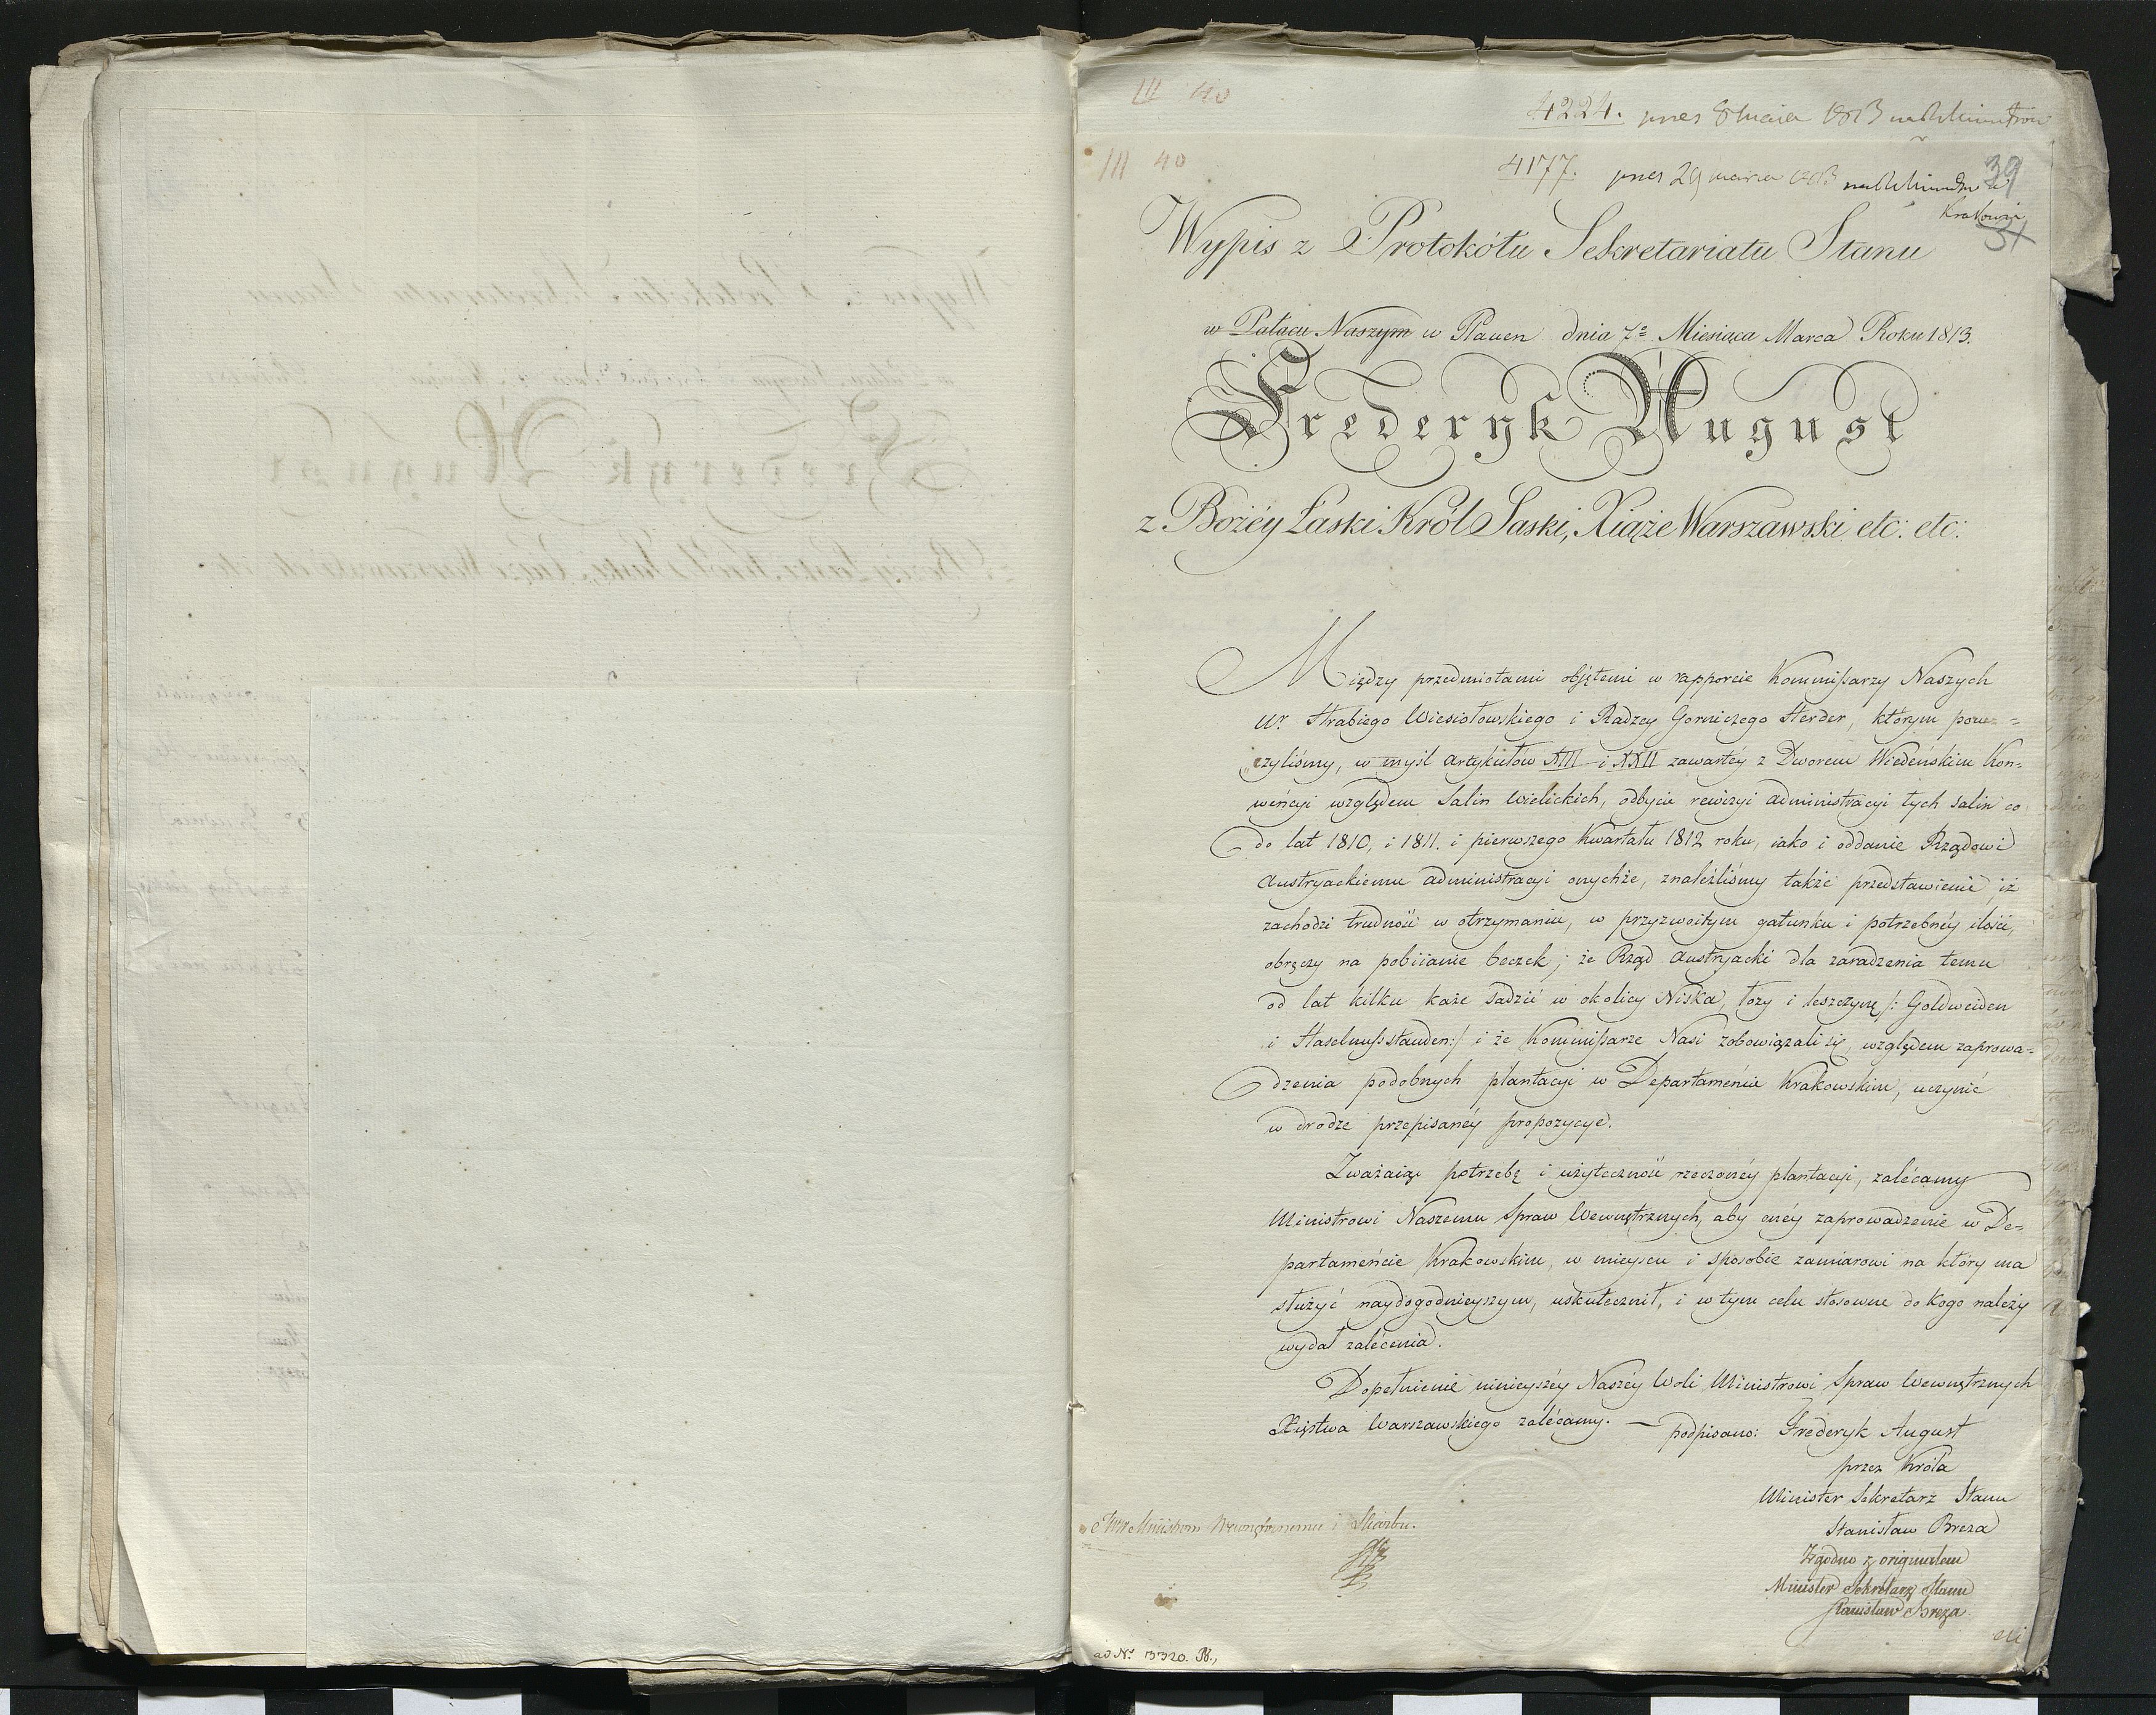 III 40
4224. pres 8 maia 1813
III 40
4177. pres 29 marca 1813
39
Krakowie
Wypis z Protokółu Sekretariatu Stanu
w Pałacu Naszym w Plauen dnia 7º Miesiąca Marca Roku 1813.
Frederyk August
z Bożéy Łaski Król Saski, Xiąże Warszawski etc: etc:
Między przedmiotami objętemi w rapporcie Kommissarzy Naszych
Ur. Hrabiego Wiesiołowskiego i Radzcy Gorniczego Herder, którym porur=
czyliśmy, w myśl artykułów XIII i XXII zawartéy z Dworem Wiedeńskim Kon=
wencyi względem Salin Wielickich, odbycie rewizyi administracyi tych salin co
do lat 1810, i 1811. i pierwszego Kwartału 1812 roku, iako i oddanie Rządowi
Austryackiemu administracyi onychże, znaleźliśmy także przedstawienie iż
zachodzi trudność w otrzymaniu, w przyzwoitym gatunku i potrzebnéy ilości,
obręczy na pobiianie beczek; że Rząd Austryacki dla zaradzenia temu
od lat kilku każe sadzić w okolicy Niska, łozy i leszczynę /: Goldweiden
i Haselnußstauden:/ i że Kommissarze Nasi zobowiązali się, względem zaprowa=
dzenia podobnych plantacyi w Departamencie Krakowskim, uczynić
w drodze przepisanéy propozycye.
Zważaiąc potrzebę i użyteczność rzeczonéy plantacyi, zalécamy
Ministrowi Naszemu Spraw Wewnętrznych, aby onéy zaprowadzenie w De=
partamencie Krakowskim, w mieyscu i sposobie zamiarowi na który ma
służyć naydogodnieyszym, uskutecznił, i w tym celu stosowne do kogo należy
wydał zalécenia.
Dopełnienie ninieyszéy Naszéy Woli Ministrowi Spraw Wewnętrznych
Xięstwa Warszawskiego zalécamy. — podpisano: Frederyk August
przez Króla
Minister Sekretarz Stanu
Stanisław Breza
Zgodno z originałem
Minister Sekretarz Stanu
Stanisław Breza
JWW Ministrom Wewnętrznemu i Skarbu.
ad Nº 3320.